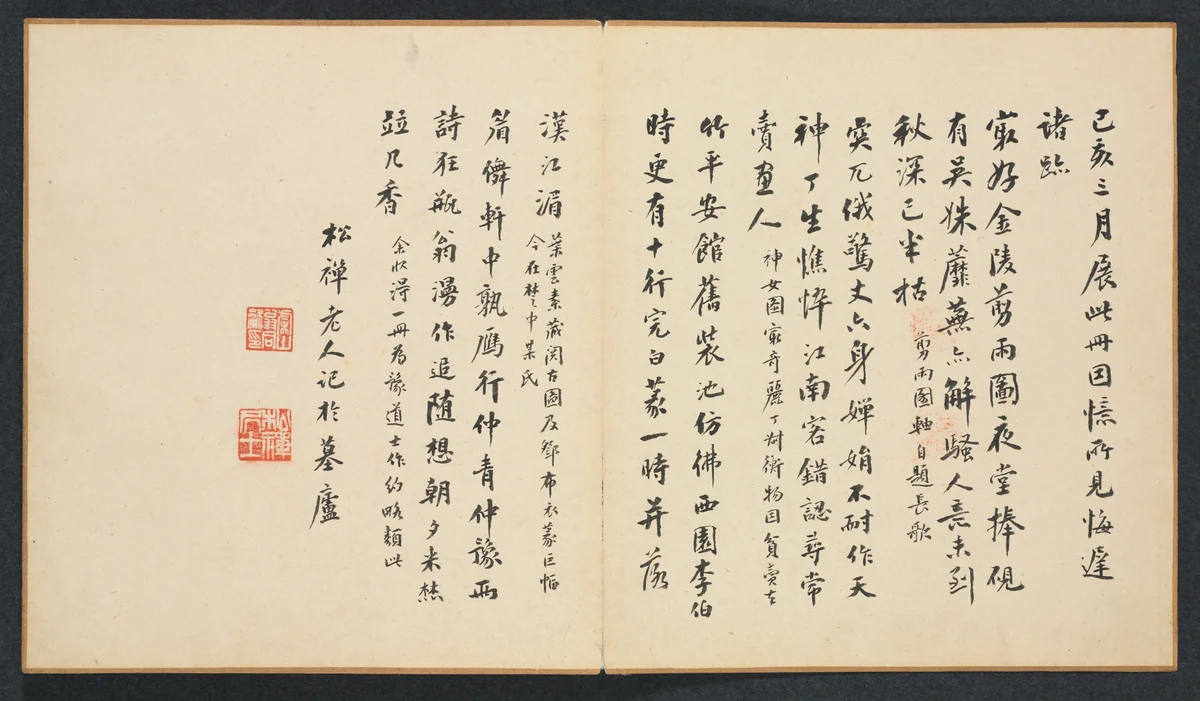 己亥三月展此冊因憶所見悔遲
諸跡
最好金陵剪雨圖夜堂捧硯
有吳姝蘼蕪亦解騷人意未到
秋深已半枯
剪雨圖軸自題長歌
突兀俄驚丈六身嬋娟不耐作天
神丁生憔悴江南客錯認尋常
賣畫人
神女圖最奇麗丁對衡物因貧賣去
竹平安館舊裝池仿彿西園李伯
時更有十行完白篆一時并落
漢江湄
葉雲素藏閱古圖及鄧布衣篆巨幅
今在楚中某氏
眉儛軒中孰雁行仲青仲豫兩
詩狂瓶翁漫作追隨想朝夕來焚
並几香
余收得一冊為豫道士作約略類此
松禪老人記於墓廬
虞山
翁同
龢印
松禪
居士